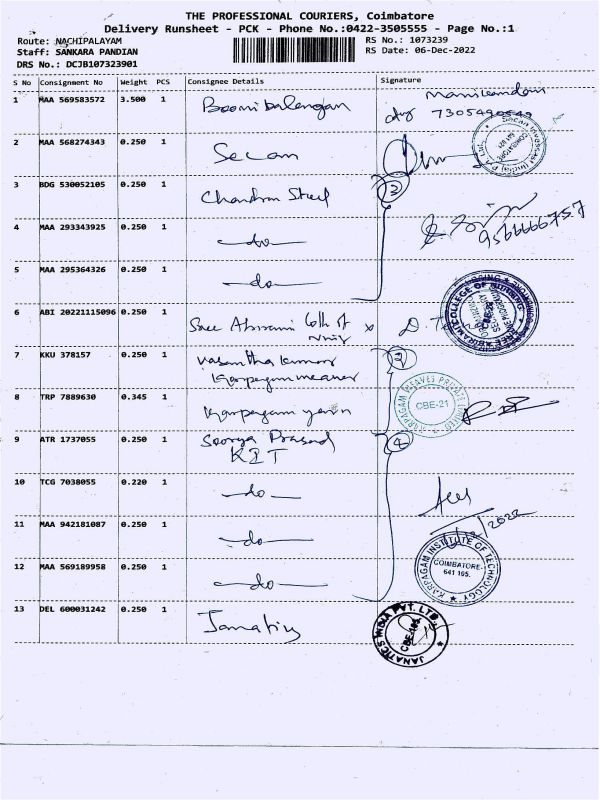 THE PROFESSIONAL COURIERS, Coimbatore
Delivery Runsheet - PCK - Phone No.:0422-3505555 - Page No.:1
Route: NACHIPALAYAM
RS No.: 1073239
Staff: SANKARA PANDIAN
RS Date: 06-Dec-2022
DRS No.: DCJB107323901
S No Consignment No Weight PCS Consignee Details Signature
1 MAA 569583572 3.500 1 Boomi balengan Manikandan
7305490549
2 MAA 568274343 0.250 1 Secan
3 BDG 530052105 0.250 1 Chandra Steel 3
4 MAA 293343925 0.250 1 -do- 9566666757
5 MAA 295364326 0.250 1 -do-
6 ABI 20221115096 0.250 1 Sree Abirami Coll of x
7 KKU 378157 0.250 1 Vasantha kumar 2
Karpagam weaves
8 TRP 7889630 0.345 1 Karpagam yarn
KARPAGAM WEAVES PRIVATE LIMITED
CBE-21
9 ATR 1737055 0.250 1 Soorya Prasad 4
KIT
10 TCG 7038055 0.220 1 -do-
11 MAA 942181087 0.250 1 -do-
12 MAA 569189958 0.250 1 -do-
KARPAGAM INSTITUTE OF TECHNOLOGY
COIMBATORE-
641 105.
13 DEL 600031242 0.250 1 Janatics
JANATICS INDIA PVT. LTD.